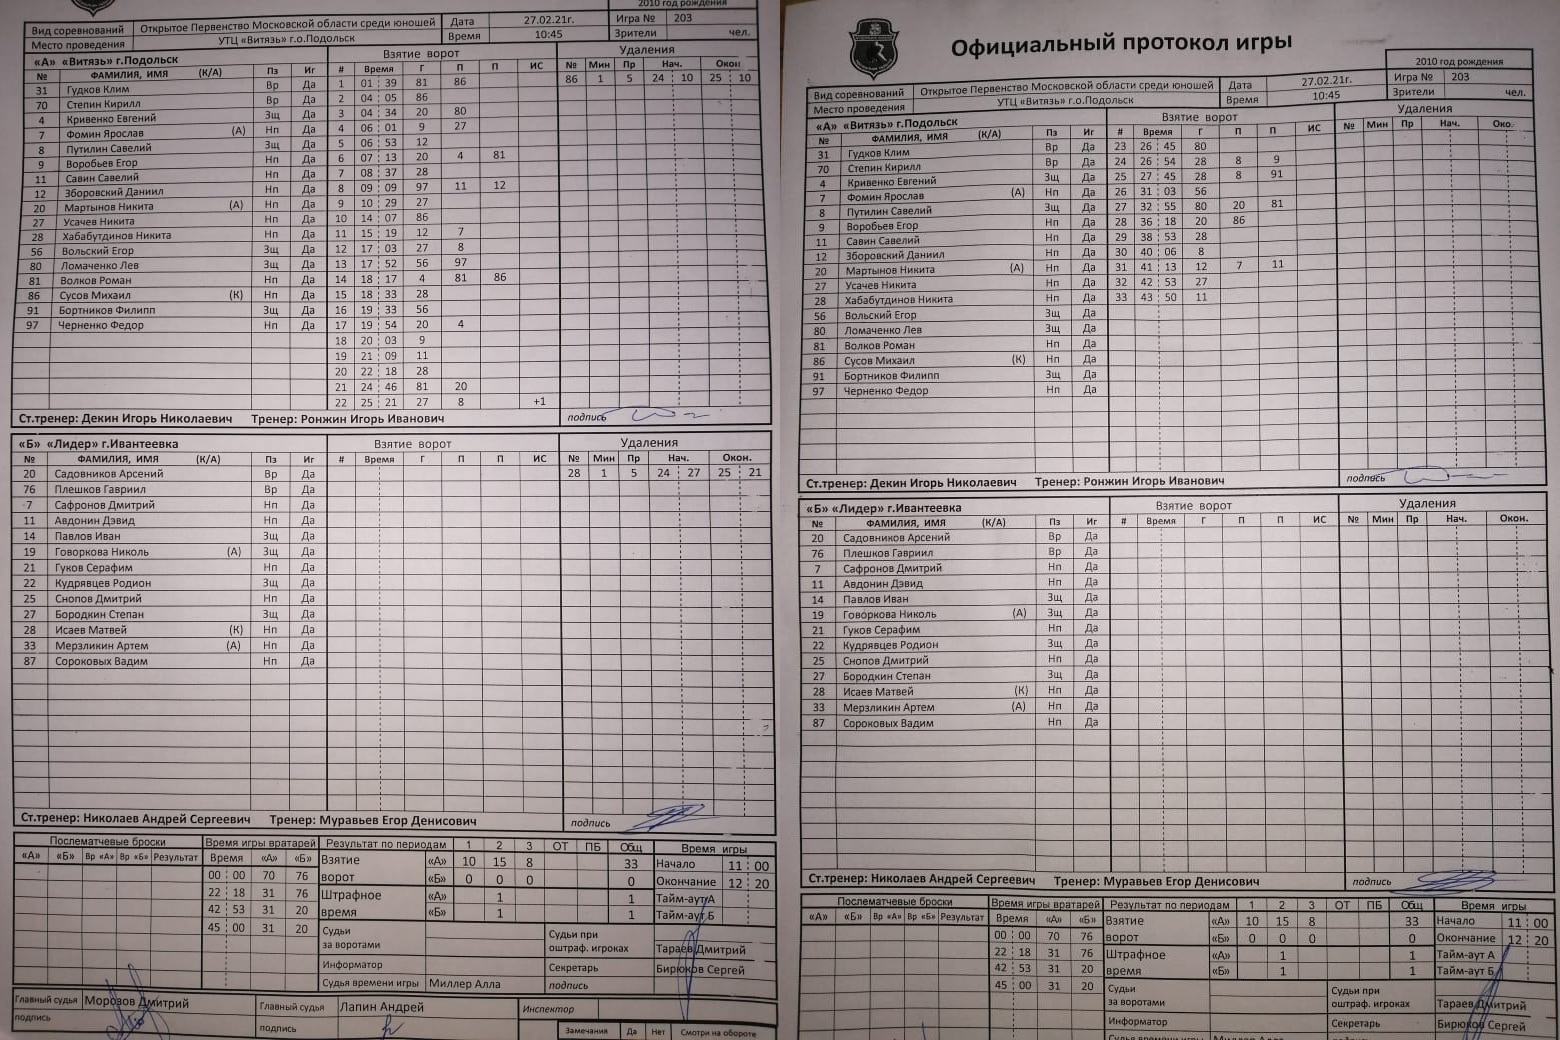 2010 год рождения
Вид соревнований Открытое Первенство Московской области среди юношей Дата 27.02.21г. Игра № 203
Место проведения УТЦ «Витязь» г.о.Подольск Время 10:45 Зрители чел.
«А» «Витязь» г.Подольск Взятие ворот Удаления
№ ФАМИЛИЯ, ИМЯ (К/А) Пз Иг # Время Г П П ИС № Мин Пр Нач. Окон
31 Гудков Клим Вр Да 1 01 39 81 86 86 1 5 24 10 25 10
70 Степин Кирилл Вр Да 2 04 05 86
4 Кривенко Евгений Зщ Да 3 04 34 20 80
7 Фомин Ярослав (А) Нп Да 4 06 01 9 27
8 Путилин Савелий Зщ Да 5 06 53 12
9 Воробьев Егор Нп Да 6 07 13 20 4 81
11 Савин Савелий Нп Да 7 08 37 28
12 Зборовский Даниил Нп Да 8 09 09 97 11 12
20 Мартынов Никита (А) Нп Да 9 10 29 27
27 Усачев Никита Нп Да 10 14 07 86
28 Хабабутдинов Никита Нп Да 11 15 19 12 7
56 Вольский Егор Зщ Да 12 17 03 27 8
80 Ломаченко Лев Зщ Да 13 17 52 56 97
81 Волков Роман Нп Да 14 18 17 4 81 86
86 Сусов Михаил (К) Нп Да 15 18 33 28
91 Бортников Филипп Зщ Да 16 19 33 56
97 Черненко Федор Нп Да 17 19 54 20 4
18 20 03 9
19 21 09 11
20 22 18 28
21 24 46 81 20
22 25 21 27 8 +1
Ст.тренер: Декин Игорь Николаевич Тренер: Ронжин Игорь Иванович подпись
«Б» «Лидер» г.Ивантеевка Взятие ворот Удаления
№ ФАМИЛИЯ, ИМЯ (К/А) Пз Иг # Время Г П П ИС № Мин Пр Нач. Окон.
20 Садовников Арсений Вр Да 28 1 5 24 27 25 21
76 Плешков Гавриил Вр Да
7 Сафронов Дмитрий Нп Да
11 Авдонин Дэвид Нп Да
14 Павлов Иван Зщ Да
19 Говоркова Николь (А) Зщ Да
21 Гуков Серафим Нп Да
22 Кудрявцев Родион Зщ Да
25 Снопов Дмитрий Нп Да
27 Бородкин Степан Зщ Да
28 Исаев Матвей (К) Нп Да
33 Мерзликин Артем (А) Нп Да
87 Сороковых Вадим Нп Да
Ст.тренер: Николаев Андрей Сергеевич Тренер: Муравьев Егор Денисович подпись
Послематчевые броски Время игры вратарей Результат по периодам 1 2 3 ОТ ПБ Общ Время игры
«А» «Б» Вр «А» Вр «Б» Результат Время «А» «Б» Взятие «А» 10 15 8 33 Начало 11 00
00 00 70 76 ворот «Б» 0 0 0 0 Окончание 12 20
22 18 31 76 Штрафное «А» 1 1 Тайм-аут А
42 53 31 20 время «Б» 1 1 Тайм-аут Б
45 00 31 20 Судьи за воротами Судьи при оштраф. игроках Тараев Дмитрий
Информатор Секретарь Бирюков Сергей
Судья времени игры Миллер Алла подпись
Главный судья Морозов Дмитрий Главный судья Лапин Андрей Инспектор
подпись подпись Замечания Да Нет Смотри на обороте
Официальный протокол игры
2010 год рождения
Вид соревнований Открытое Первенство Московской области среди юношей Дата 27.02.21г. Игра № 203
Место проведения УТЦ «Витязь» г.о.Подольск Время 10:45 Зрители чел.
«А» «Витязь» г.Подольск Взятие ворот Удаления
№ ФАМИЛИЯ, ИМЯ (К/А) Пз Иг # Время Г П П ИС № Мин Пр Нач. Око
31 Гудков Клим Вр Да 23 26 45 80
70 Степин Кирилл Вр Да 24 26 54 28 8 9
4 Кривенко Евгений Зщ Да 25 27 45 28 8 91
7 Фомин Ярослав (А) Нп Да 26 31 03 56
8 Путилин Савелий Зщ Да 27 32 55 80 20 81
9 Воробьев Егор Нп Да 28 36 18 20 86
11 Савин Савелий Нп Да 29 38 53 28
12 Зборовский Даниил Нп Да 30 40 06 8
20 Мартынов Никита (А) Нп Да 31 41 13 12 7 11
27 Усачев Никита Нп Да 32 42 53 27
28 Хабабутдинов Никита Нп Да 33 43 50 11
56 Вольский Егор Зщ Да
80 Ломаченко Лев Зщ Да
81 Волков Роман Нп Да
86 Сусов Михаил (К) Нп Да
91 Бортников Филипп Зщ Да
97 Черненко Федор Нп Да
Ст.тренер: Декин Игорь Николаевич Тренер: Ронжин Игорь Иванович подпись
«Б» «Лидер» г.Ивантеевка Взятие ворот Удаления
№ ФАМИЛИЯ, ИМЯ (К/А) Пз Иг # Время Г П П ИС № Мин Пр Нач. Окон.
20 Садовников Арсений Вр Да
76 Плешков Гавриил Вр Да
7 Сафронов Дмитрий Нп Да
11 Авдонин Дэвид Нп Да
14 Павлов Иван Зщ Да
19 Говоркова Николь (А) Зщ Да
21 Гуков Серафим Нп Да
22 Кудрявцев Родион Зщ Да
25 Снопов Дмитрий Нп Да
27 Бородкин Степан Зщ Да
28 Исаев Матвей (К) Нп Да
33 Мерзликин Артем (А) Нп Да
87 Сороковых Вадим Нп Да
Ст.тренер: Николаев Андрей Сергеевич Тренер: Муравьев Егор Денисович подпись
Послематчевые броски Время игры вратарей Результат по периодам 1 2 3 ОТ ПБ Общ Время игры
«А» «Б» Вр «А» Вр «Б» Результат Время «А» «Б» Взятие «А» 10 15 8 33 Начало 11 00
00 00 70 76 ворот «Б» 0 0 0 0 Окончание 12 20
22 18 31 76 Штрафное «А» 1 1 Тайм-аут А
42 53 31 20 время «Б» 1 1 Тайм-аут Б
45 00 31 20 Судьи за воротами Судьи при оштраф. игроках Тараев Дмитрий
Информатор Секретарь Бирюков Сергей
Судья времени игры Миллер Алла